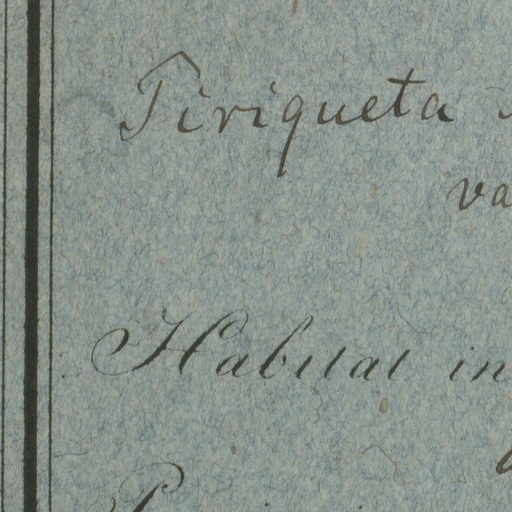 Piriqueta
va
Habitat in